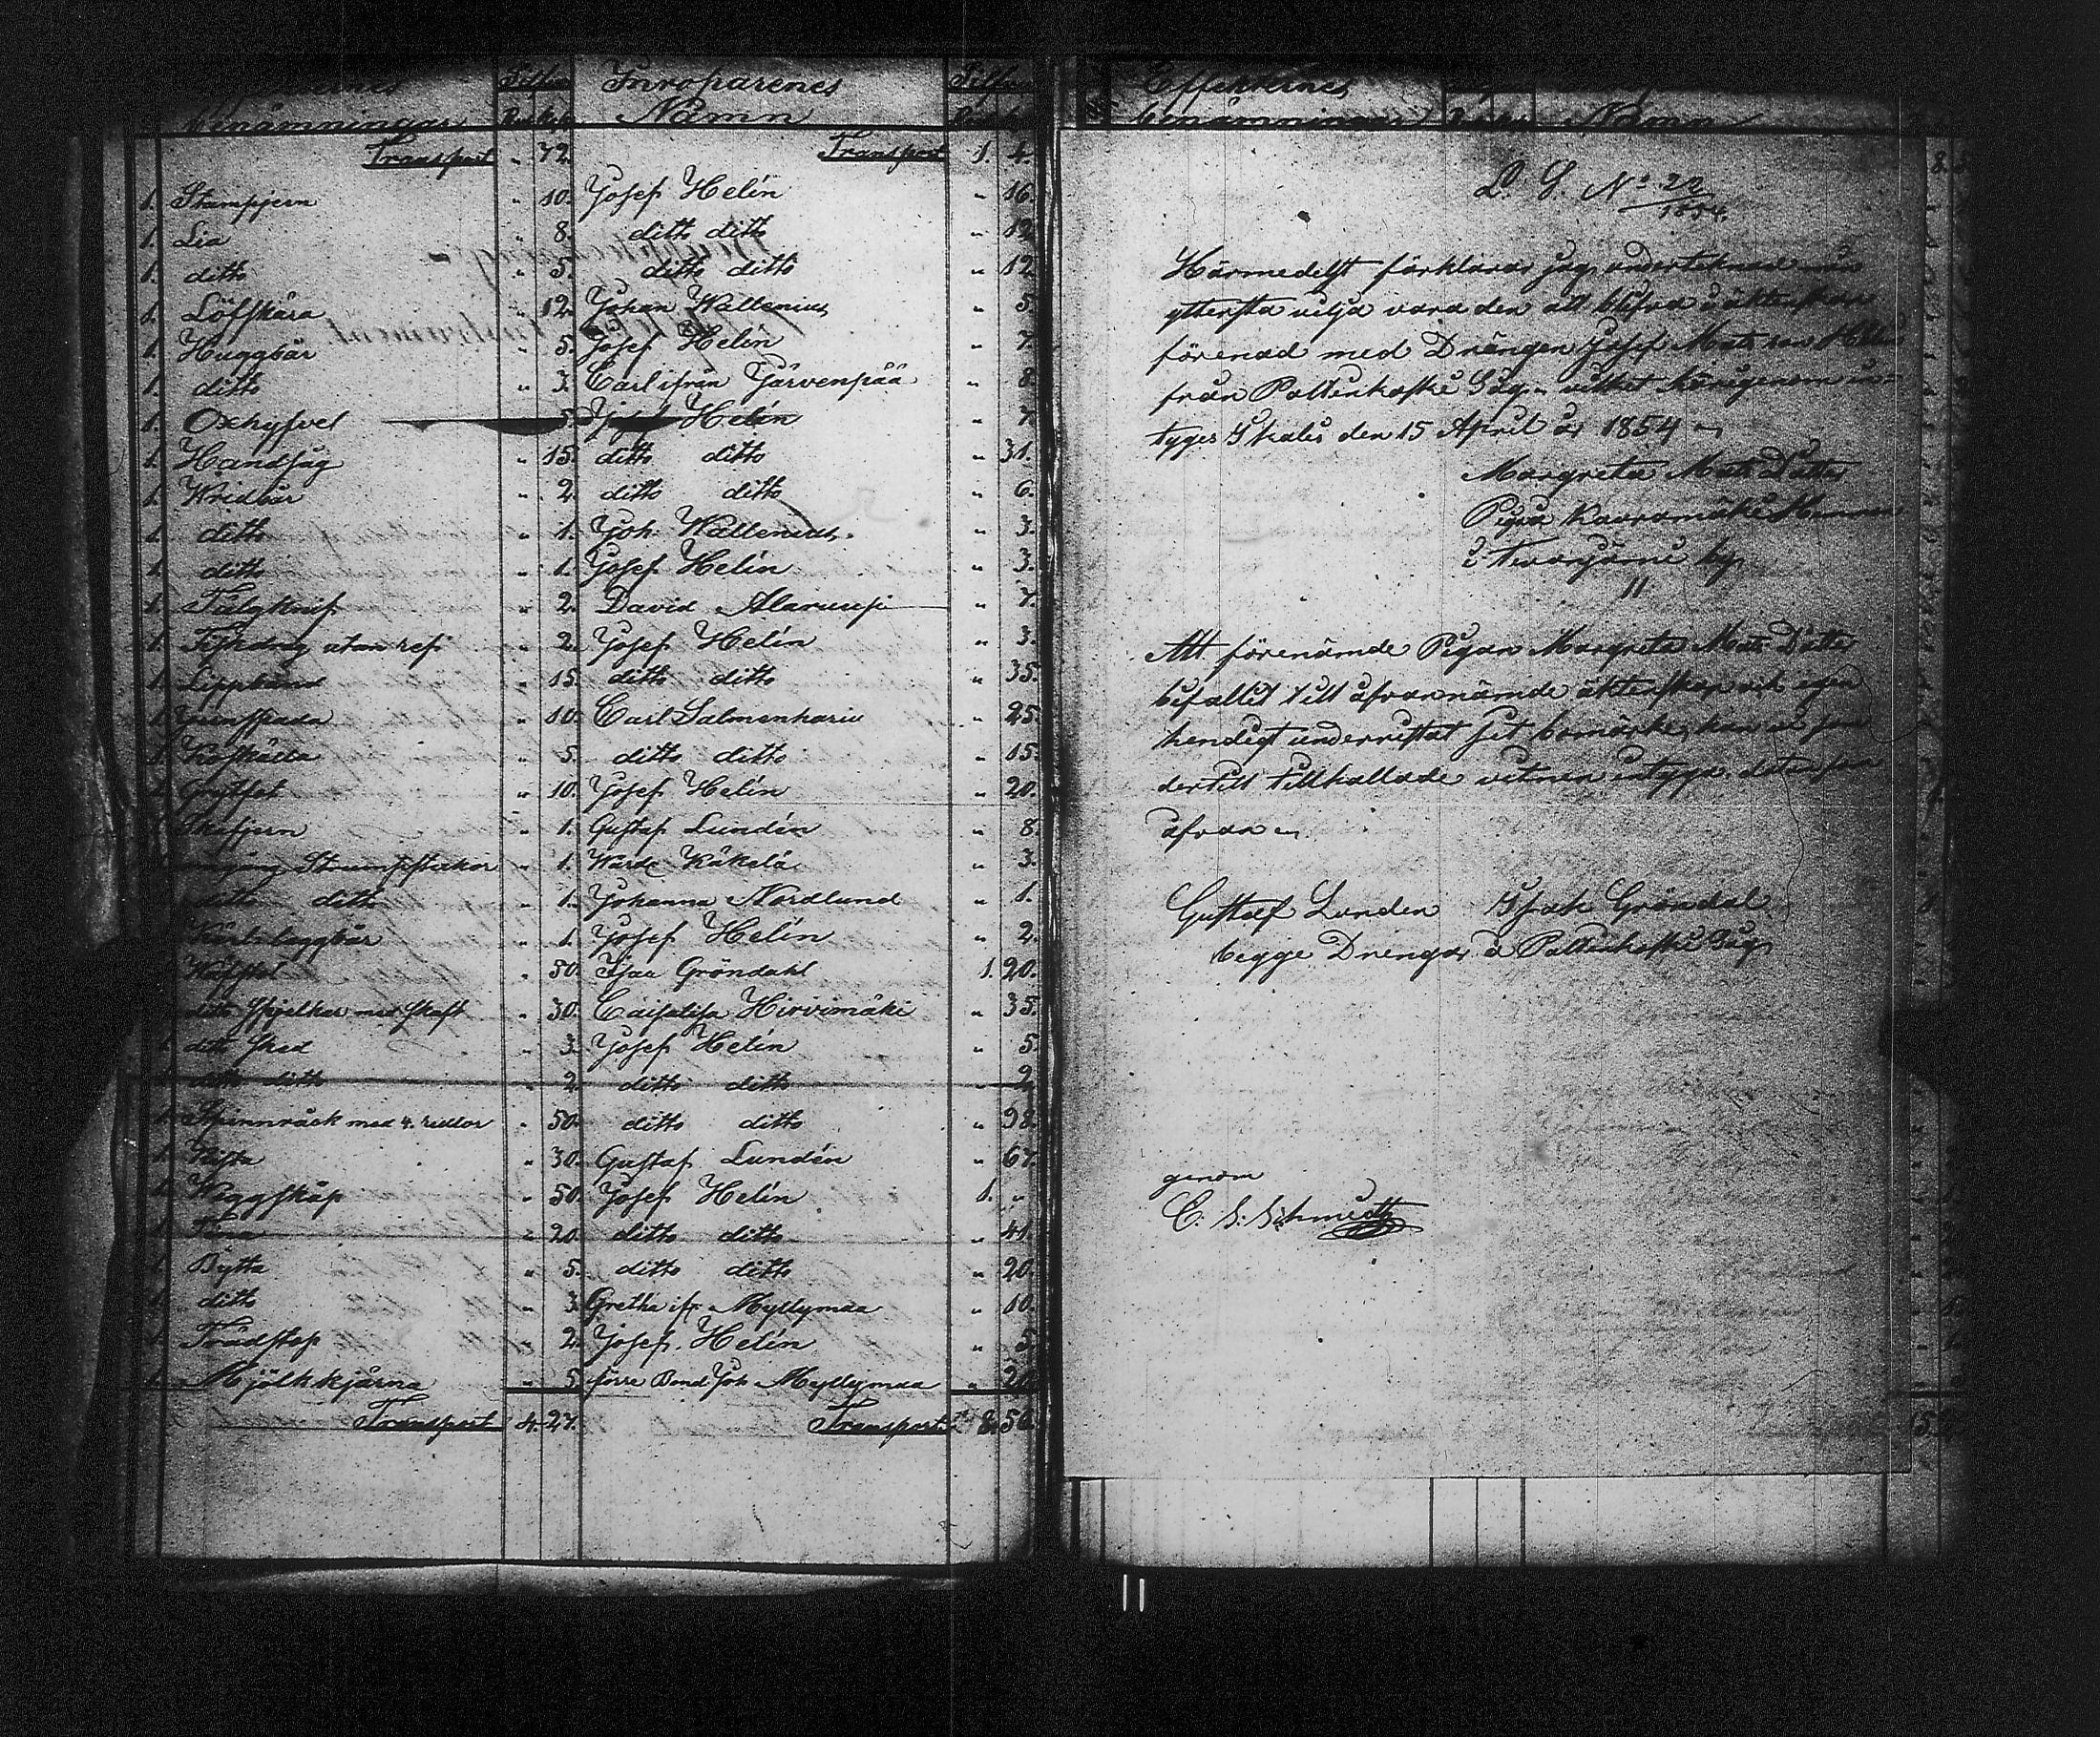 benämningar Rub. Kop. Inroparenes Namn Silfver
Transport " 72. Transport 1. 4.
1. Stampjern " 10. Josef Helén " 16.
1. Lia " 8. ditto ditto " 12
1. ditto " 5. ditto ditto " 12
1. Löfskära " 12. Johan Wallenius " 5.
1. Huggbår " 5. Josef Helén " 7.
1. ditto " 3. Carl ifrån Järvenpää " 8.
1. Oxhyfvel 5. Josef Helén " 7.
1. Handsåg " 15. ditto ditto " 31.
1. Wridbår " 2. ditto ditto " 6.
1. ditto " 1. Joh. Wallenius. " 3.
1. ditto " 1. Josef Helén " 3.
1. Tälgknif " 2. David Alaruusi " 7.
1. Fiskdrag utan ref " 2. Josef Helén " 3.
1. Lippband " 15. ditto ditto " 35.
1. Jernspada " 10. Carl Salmenhariu " 25.
1. Koskälla " 5. ditto ditto " 15.
1. Grytfot " 10. Josef Helén " 20.
Skafjern " 1. Gustaf Lundén " 8.
Strumpstickor " 1. Wärd Käkelä " 3.
ditto ditto " 1. Johanna Nordlund " 1.
Kärl-laggbår " 1. Josef Helén " 2.
Wäfstol " 50. Isac Gröndahl 1. 20.
ditto Spjelkar med skaft " 30. Caisalisa Hirvimäki " 35.
1. ditto sked " 3. Josef Helén " 5.
1. ditto ditto " 2. ditto ditto " 2.
1. Spinnråck med 4. rullor " 50. ditto ditto " 98.
1. Kista " 30. Gustaf Lundén " 67.
1. Wäggskåp " 50. Josef Helén 1. "
1. Tina " 20. ditto ditto " 41.
1. Bytta " 5. ditto ditto " 20.
1. ditto " 3. Gretha ifr. Myllymaa " 10.
1. Trädstop " 2. Josef. Helén " 5.
1. Mjölkkjärna " 5. förre Bond Joh Myllymaa " 20.
Transport 4. 27. Transport 8. 56.
Effekternes
benämningar Namn
L. G. No 22
1854.
Härmedelst förklarar jag undertecknad min
yttersta vilja vara den att blifva i äktenskap
förenad med Drängen Josef Mats son Helen
från Pattinkoski Såg, vilket härigenom in-
tyges Ikalis den 15 April år 1854
Margreta Mats Dotter
Piga
i by
11
Att förenämde Pigan Margreta Mats Dotter
bifallit till åfvannämde äktenskap och egen
hendigt underristat sit bomärke, kan vi som
dertill tillkallade vitnen intyga. dato som
åfvan
Gustaf Lunden Isak Gröndal
begge Drengar å Pattinkoski Såg
genom
C. S. Schmidt
11